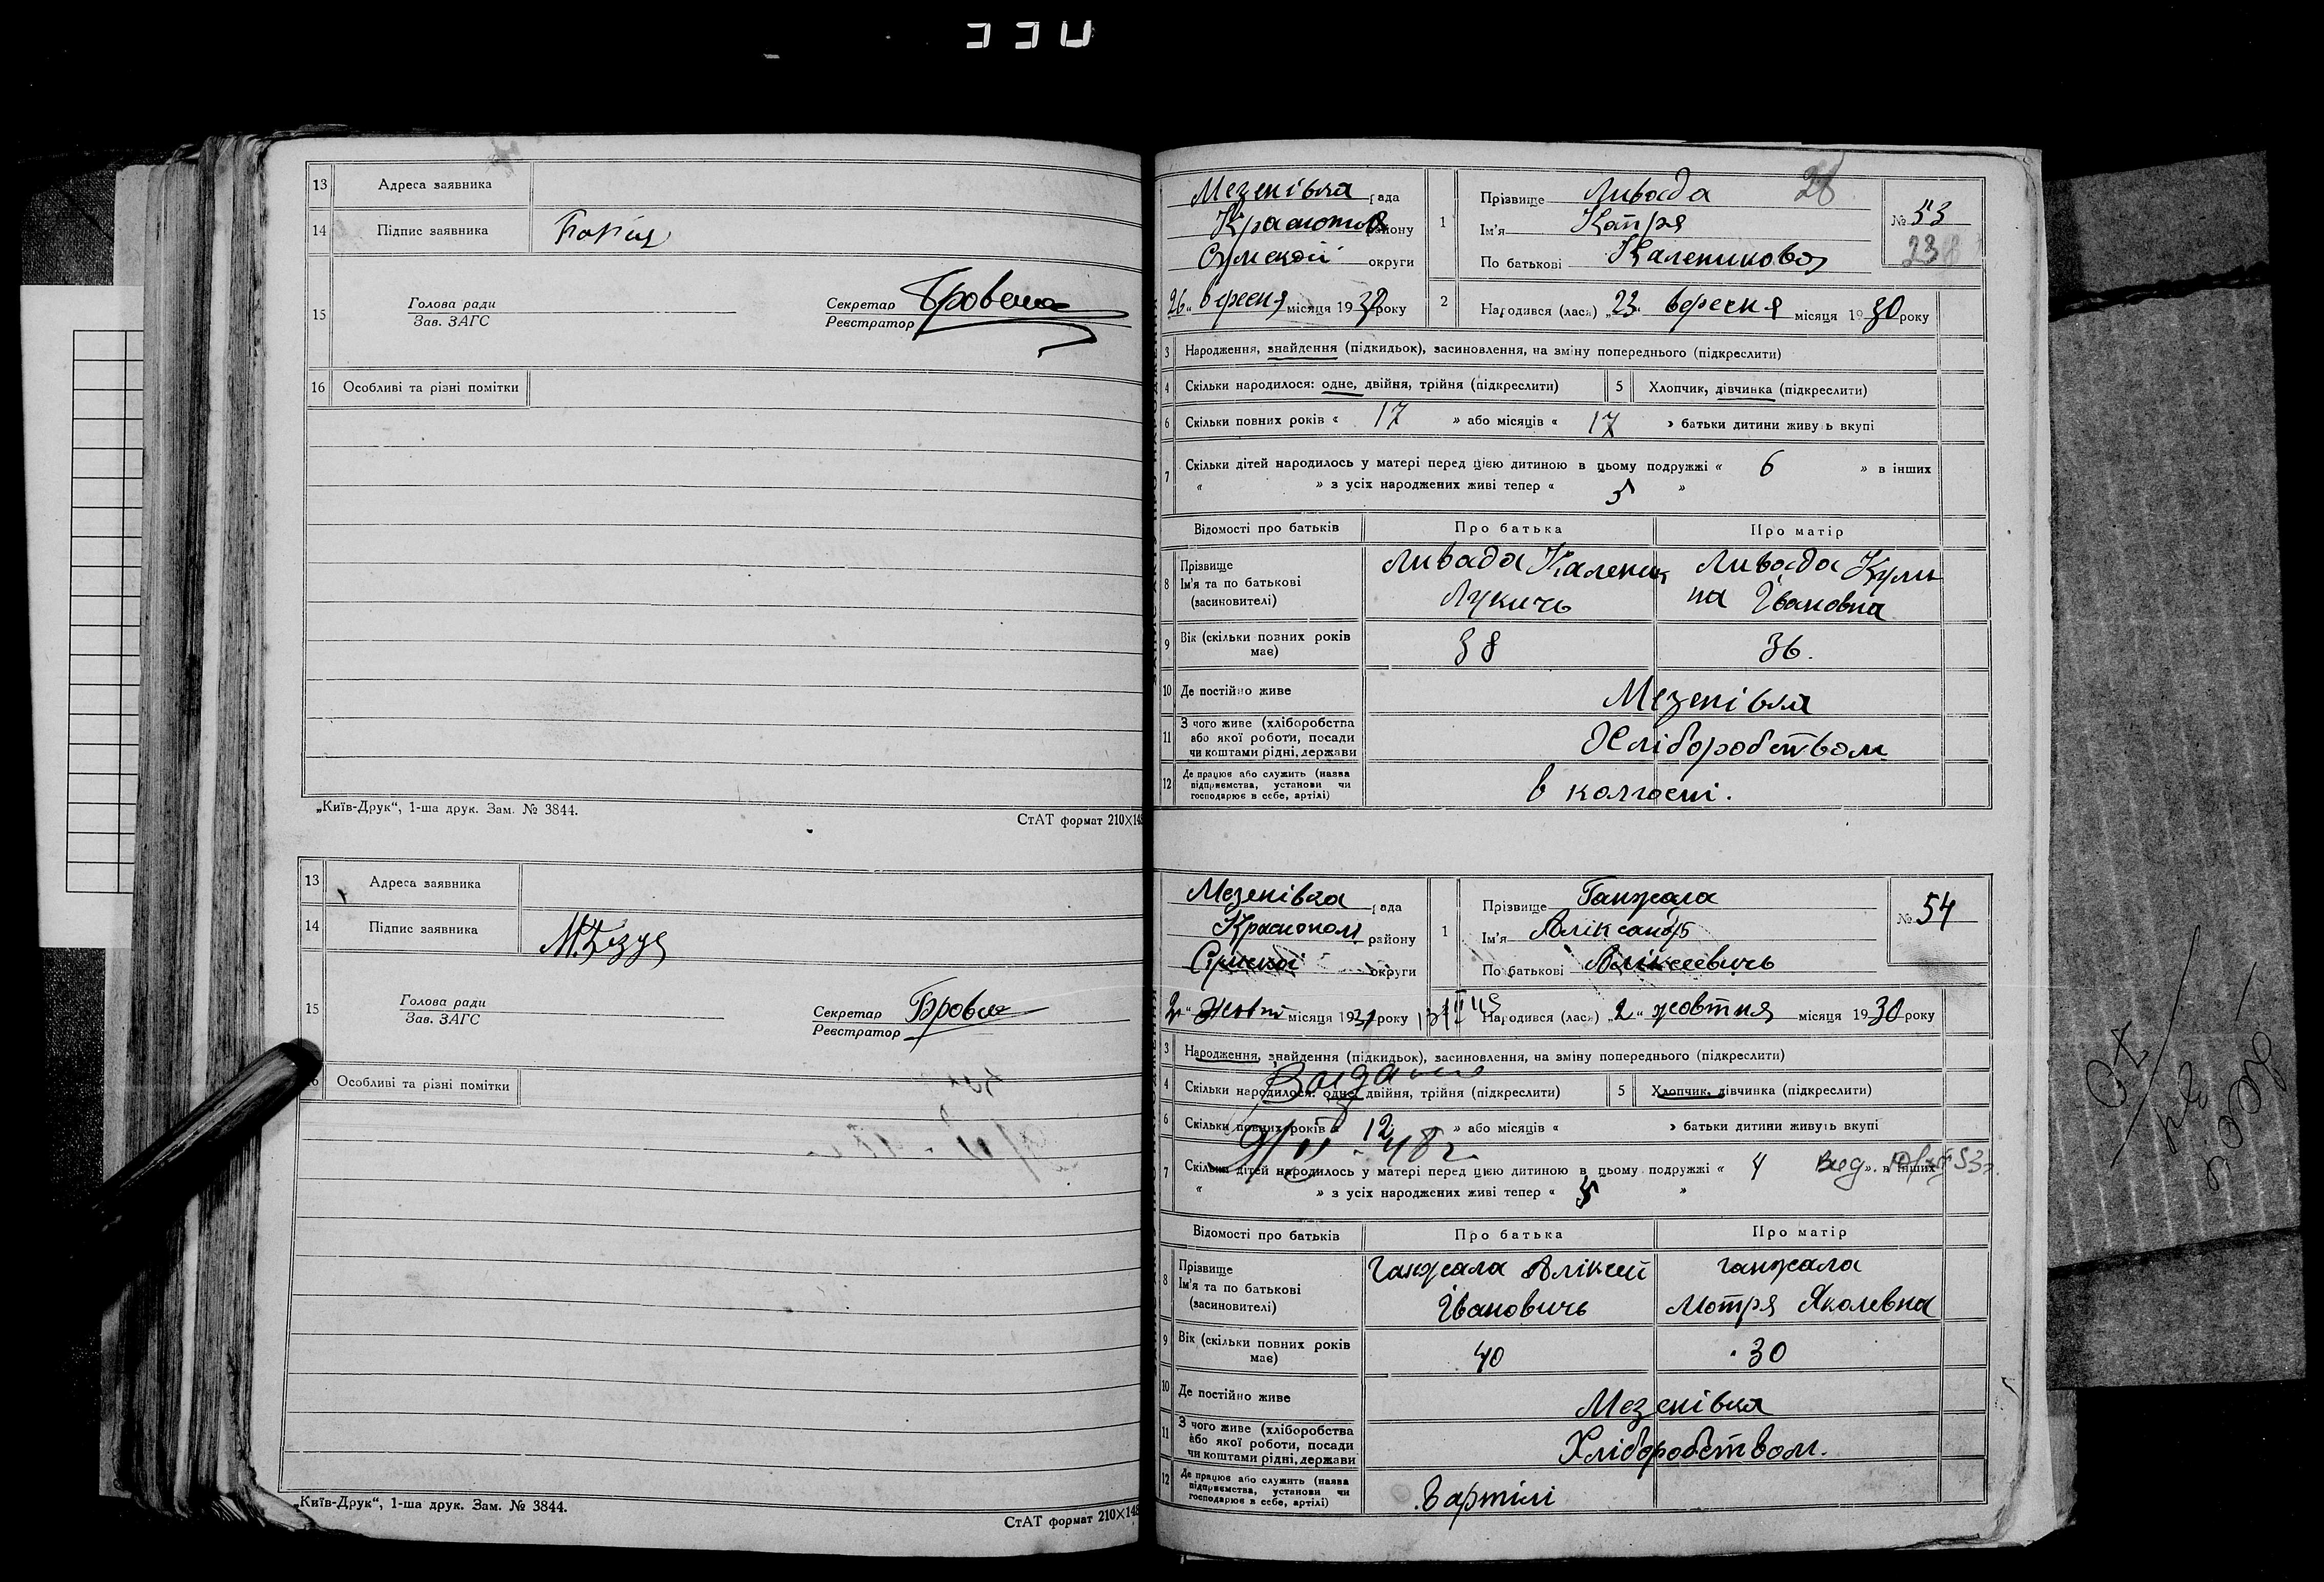 13 Адреса заявника
14 Підпис заявника
15 Голова ради Секретар Бровенко
Зав. ЗАГС Реєстратор
16 Особливі та різні помітки
„Київ-Друк“, 1-ша друк. Зам. № 3844.
СтАТ формат 210×148
13 Адреса заявника
14 Підпис заявника
15 Голова ради Секретар
Зав. ЗАГС Реєстратор
16 Особливі та різні помітки
„Київ-Друк“, 1-ша друк. Зам. № 3844.
СтАТ формат 210×148
Мезенівка рада
району
Сумской округи
26 вересня місяця 1930 року
1 Прізвище Ливада 28
Ім'я Катря
По батькові Калениковa
№ 53
238
2 Народився (лася) „23“ вересня місяця 1930 року
3 Народження, знайдення (підкидьок), засиновлення, на зміну попереднього (підкреслити)
4 Скільки народилося: одне, двійня, трійня (підкреслити) 5 Хлопчик, дівчинка (підкреслити)
6 Скільки повних років « 17 » або місяців « 17 » батьки дитини живуть вкупі
7 Скільки дітей народилось у матері перед цією дитиною в цьому подружжі « 6 » в інших
« » з усіх народжених живі тепер « 5 »
Відомості про батьків Про батька Про матір
8 Прізвище Ім'я та по батькові (засиновителі) Ливада Каленик Лукичь Ливада Кулина Івановна
9 Вік (скільки повних років має) 38 36.
10 Де постійно живе Мезенівка
11 З чого живе (хліборобства або якої роботи, посади чи коштами рідні, держави Хліборобством
12 Де працює або служить (назва підприємства, установи чи господарює в себе, артілі) в колгоспі.
Мезенівка рада
Краснопол району
Сумської округи
2 Жовтн місяця 193 року
1 Прізвище Ганжала
Ім'я Аліксандр
По батькові Аліксеевичь
№ 54
Народився (лася) „2“ жовтня місяця 1930 року
3 Народження, знайдення (підкидьок), засиновлення, на зміну попереднього (підкреслити)
4 Скільки народилося: одне, двійня, трійня (підкреслити) 5 Хлопчик, дівчинка (підкреслити)
6 Скільки повних років « 12 » або місяців « » батьки дитини живуть вкупі
7 Скільки дітей народилось у матері перед цією дитиною в цьому подружжі « 4 » в інших
« » з усіх народжених живі тепер « 5 »
Відомості про батьків Про батька Про матір
8 Прізвище Ім'я та по батькові (засиновителі) Ганжала Аліксей Івановичь ганжала Мотря Яколевна
9 Вік (скільки повних років має) 40 30
10 Де постійно живе Мезенівка
11 З чого живе (хліборобства або якої роботи, посади чи коштами рідні, держави Хліборобством.
12 Де працює або служить (назва підприємства, установи чи господарює в себе, артілі) Вартілі